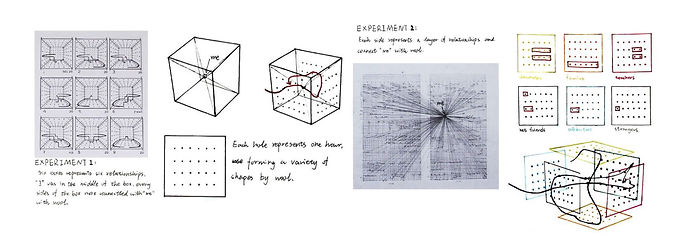 EXPERIMENT 1:
Six cubes represents six relationships.
"I" was in the middle of the box, every
sides of the box were connected with "me"
with wool.
me
Each hole represents one hour,
forming a variety of
shapes by wool.
EXPERIMENT 2:
Each side represents a layer of relationships and
connect "me" with wool.
me
families
teachers
net friends
strangers